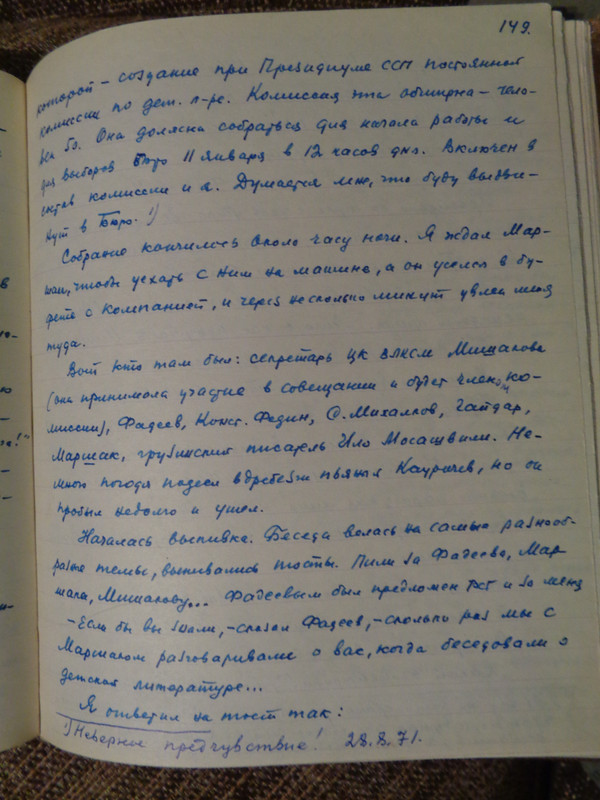 149.
которой – создание при Президиуме ССП постоянной
комиссии по дет. л-ре. Комиссия эта обширна – чело-
век 60. Она должна собраться для начала работы и
для выборов Бюро 11 января в 12 часов дня. Включен в
состав комиссии и я. Думается мне, что буду выдви-
нут в Бюро. ¹)
Собрание кончилось около часу ночи. Я ждал Мар-
шака, чтобы уехать с ним на машине, а он уселся в бу-
фете с компанией, и через несколько минут увлек меня
туда.
Вот кто там был: секретарь ЦК ВЛКСМ Мишакова
(она принимала участие в совещании и будет членом ко-
миссии), Фадеев, Конст. Федин, С. Михалков, Гайдар,
Маршак, грузинский писатель Ило Мосашвили. Не-
много погодя подсел вдребезги пьяный Кауричев, но он
пробыл недолго и ушел.
Началась выпивка. Беседа велась на самые разнооб-
разные темы, выпивались тосты. Пили за Фадеева, Мар-
шака, Мишакову... Фадеевым был предложен тост и за меня
– Если бы вы знали, – сказал Фадеев, – сколько раз мы с
Маршаком разговаривали о вас, когда беседовали о
детской литературе...
Я ответил на тост так:
¹) Неверное предчувствие! 28.8.71.
в
ю
е!"